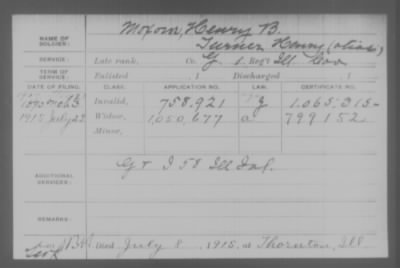 NAME OF SOLDIER: Moxom, Henry B.
Turner Henry (alias)
SERVICE: Late rank, Co. G, 1 Reg't Ill Cav
TERM OF SERVICE: Enlisted , 1 Discharged , 1
DATE OF FILING. CLASS. APPLICATION NO. LAW. CERTIFICATE NO.
Invalid, 758.921 1.065.315
1915 July 23 Widow, 1,050,677 a 799152
Minor,
ADDITIONAL SERVICES: G & I 58 Ill Inf.
REMARKS:
Died July 8, 1915, at Thornton, Ill.